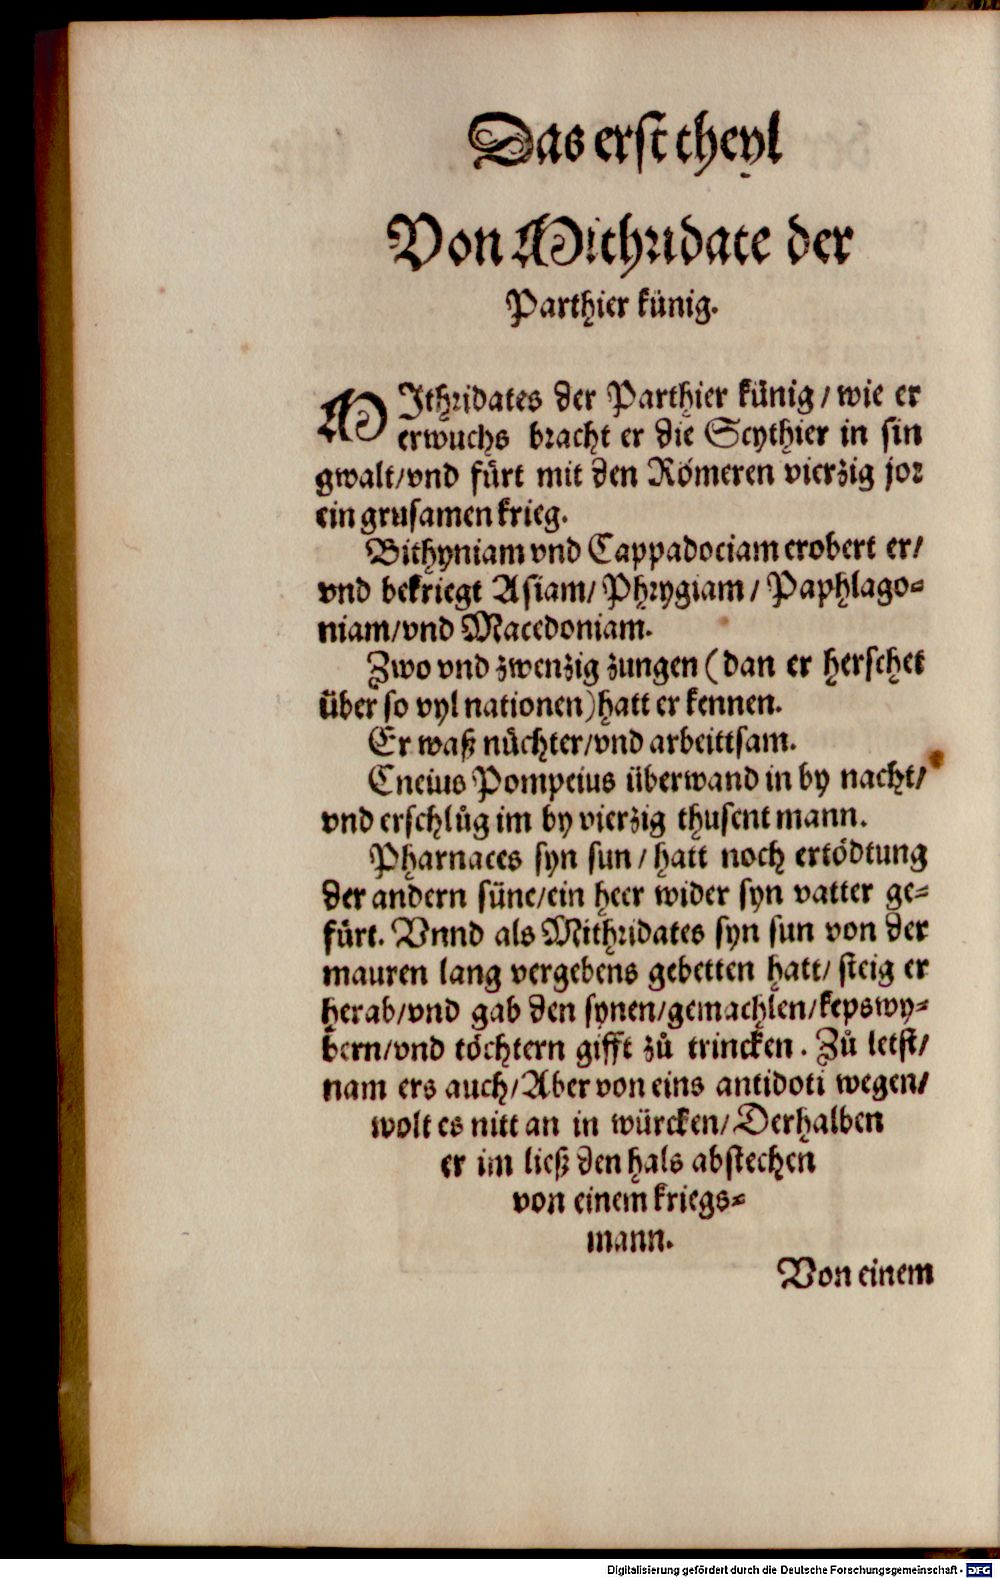 Das erst theyl
Von Mithridate der
Parthier künig.
MIthridates der Parthier künig/ wie er
erwuchs bracht er die Scythier in sin
gwalt/vnd fürt mit den Römeren vierzig jor
ein grusamen krieg.
Bithyniam vnd Cappadociam erobert er/
vnd bekriegt Asiam/ Phrygiam/ Paphlago-
niam/vnd Macedoniam.
Zwo vnd zwenzig zungen (dan er herschet
über so vyl nationen) hatt er kennen.
Er waß nüchter/vnd arbeittsam.
Cneius Pompeius überwand in by nacht/
vnd erschlůg im by vierzig thusent mann.
Pharnaces syn sun/ hatt noch ertödtung
der andern süne/ein heer wider syn vatter ge-
fürt. Vnnd als Mithridates syn sun von der
mauren lang vergebens gebetten hatt/ steig er
herab/vnd gab den synen/gemachlen/kepswy-
bern/vnd töchtern gifft zů trincken. Zů letst/
nam ers auch/Aber von eins antidoti wegen/
wolt es nitt an in würcken/Derhalben
er im ließ den hals abstechen
von einem kriegs-
mann.
Von einem
Digitalisierung gefördert durch die Deutsche Forschungsgemeinschaft - DFG